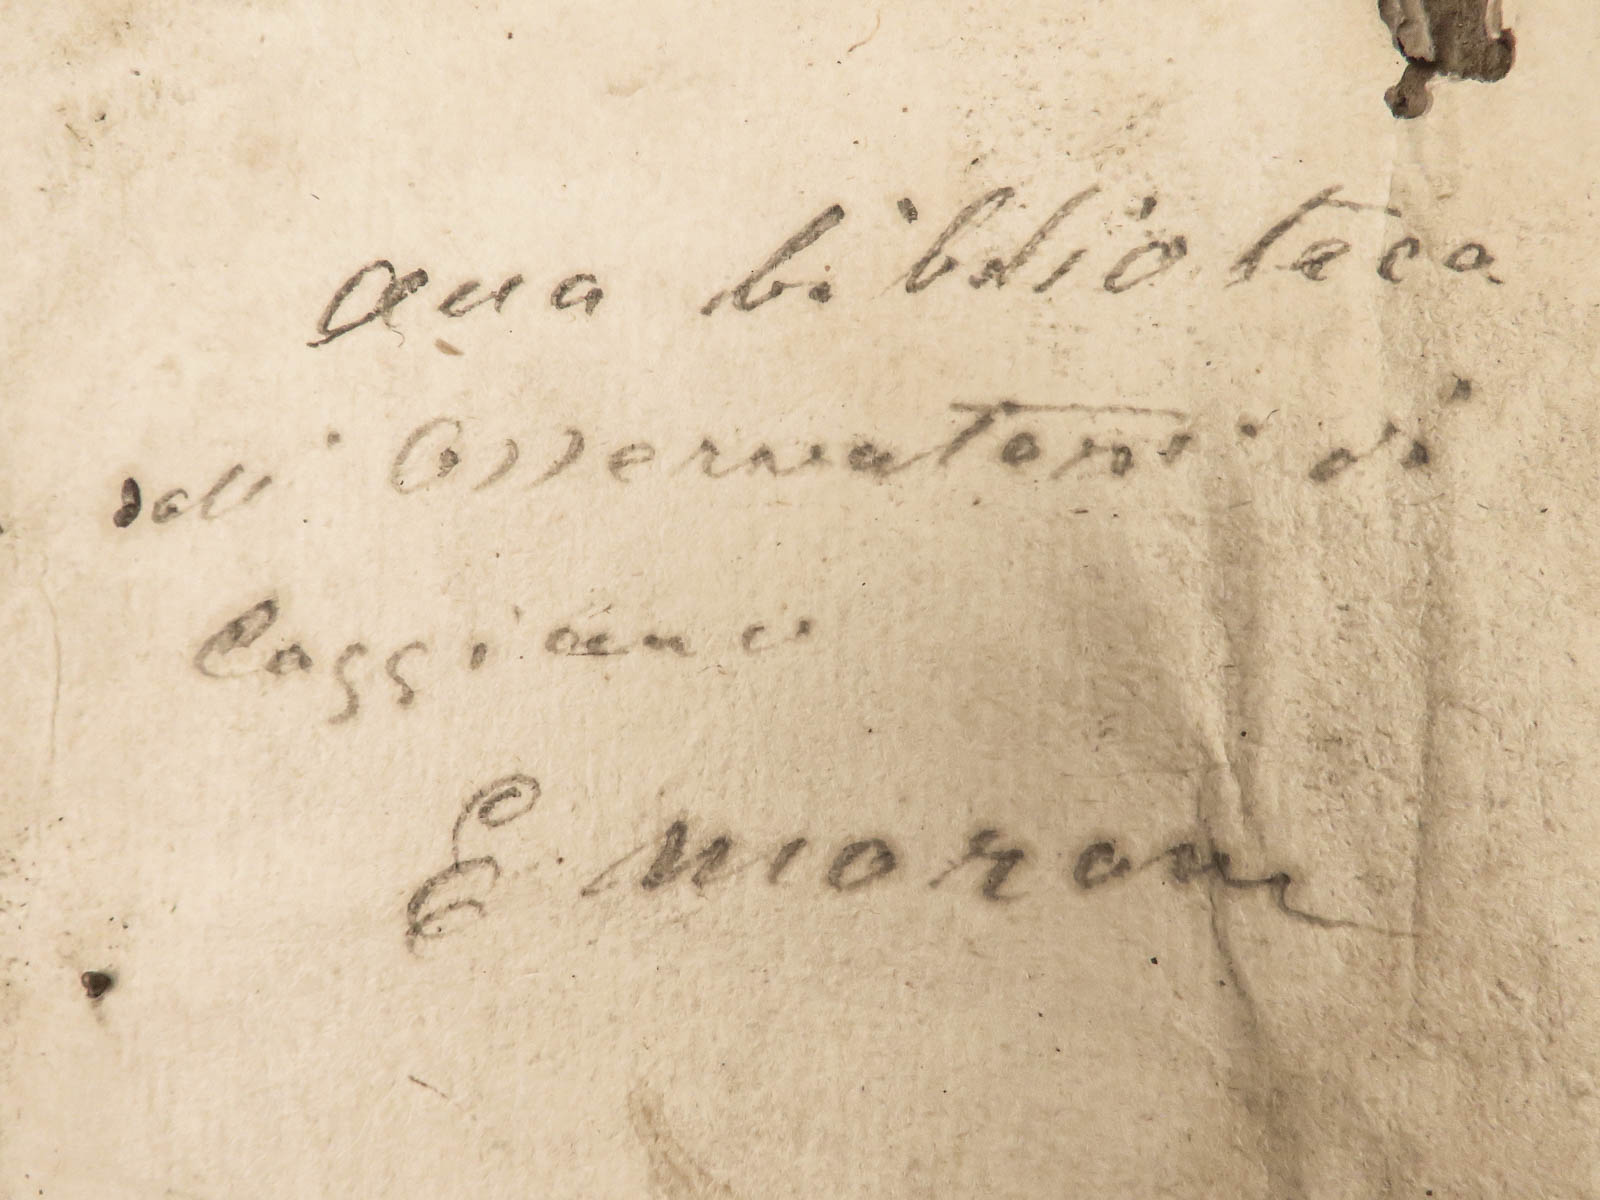 alla biblioteca
dell' Osservatorio di
Caggiano
E Moroni